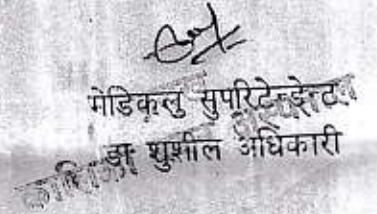 मेडिकलु सुपरिटेन्डेन्ट
डा शुशील अधिकारी